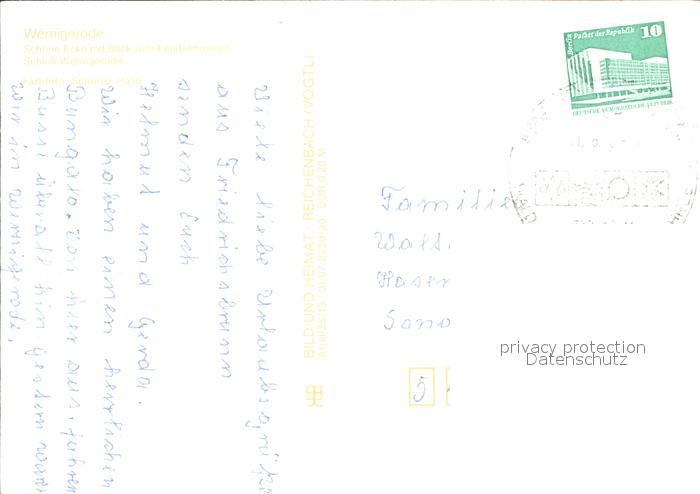 Wernigerode
Schöne Ecke mit Blick zum Feudalmuseum
Schloß Wernigerode
Farbfoto: Schulze, Halle
Viele liebe Urlaubsgrüße
aus Friedrichsbrunn
senden Euch
Helmut und Gerda.
Wir haben einen herrlichen
Bungalo. Von hier aus, fahren
Busse überall hin gestern waren
wir in Wernigerode.
BILD UND HEIMAT · REICHENBACH (VOGTL)
A1/III/26/13 01 07 0220/30 DDR 0,20 M
Familie
Walt
Haser
Sono
5
Berlin Palast der Republik 10
DEUTSCHE DEMOKRATISCHE REPUBLIK
privacy protection
Datenschutz